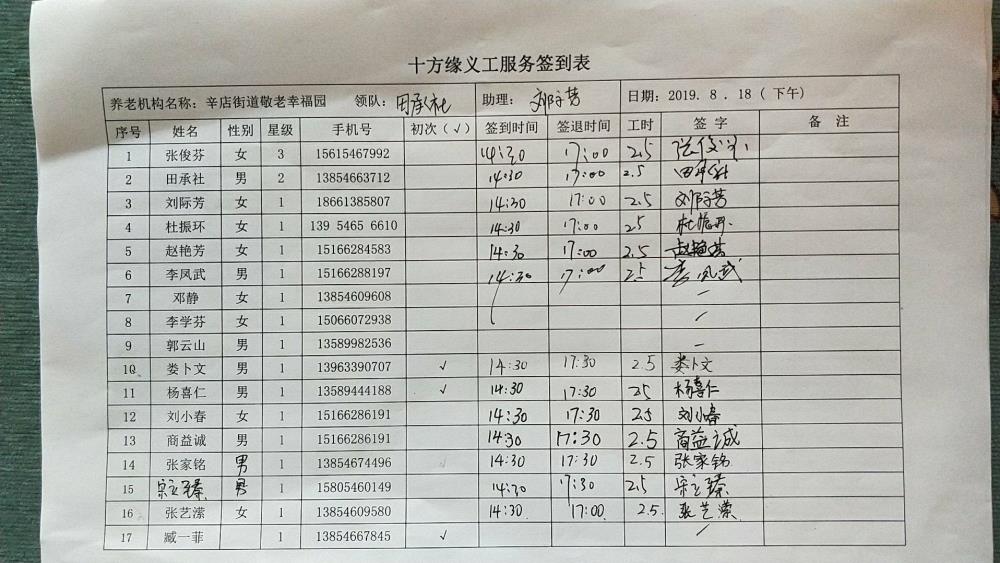 十方缘义工服务签到表
养老机构名称：辛店街道敬老幸福园 领队：田承社 助理：刘际芳 日期：2019.8.18（下午）
序号 姓名 性别 星级 手机号 初次（√） 签到时间 签退时间 工时 签字 备注
1 张俊芬 女 3 15615467992 14:30 17:00 2.5 张俊芬
2 田承社 男 2 13854663712 14:30 17:00 2.5 田承社
3 刘际芳 女 1 18661385807 14:30 17:00 2.5 刘际芳
4 杜振环 女 1 139 5465 6610 14:30 17:00 2.5 杜振环
5 赵艳芳 女 1 15166284583 14:30 17:00 2.5 赵艳芳
6 李凤武 男 1 15166288197 14:30 17:00 2.5 李凤武
7 邓静 女 1 13854609608 —
8 李学芬 女 1 15066072938 /
9 郭云山 男 1 13589982536 —
10 娄卜文 男 1 13963390707 √ 14:30 17:30 2.5 娄卜文
11 杨喜仁 男 1 13589444188 √ 14:30 17:30 2.5 杨喜仁
12 刘小春 女 1 15166286191 14:30 17:30 2.5 刘小春
13 商益诚 男 1 15166286191 14:30 17:30 2.5 商益诚
14 张家铭 男 1 13854674496 14:30 17:30 2.5 张家铭
15 宋立臻 男 1 15805460149 14:30 17:30 2.5 宋立臻
16 张艺潆 女 1 13854609580 14:30 17:00 2.5 张艺潆
17 臧一菲 1 13854667845 √ /